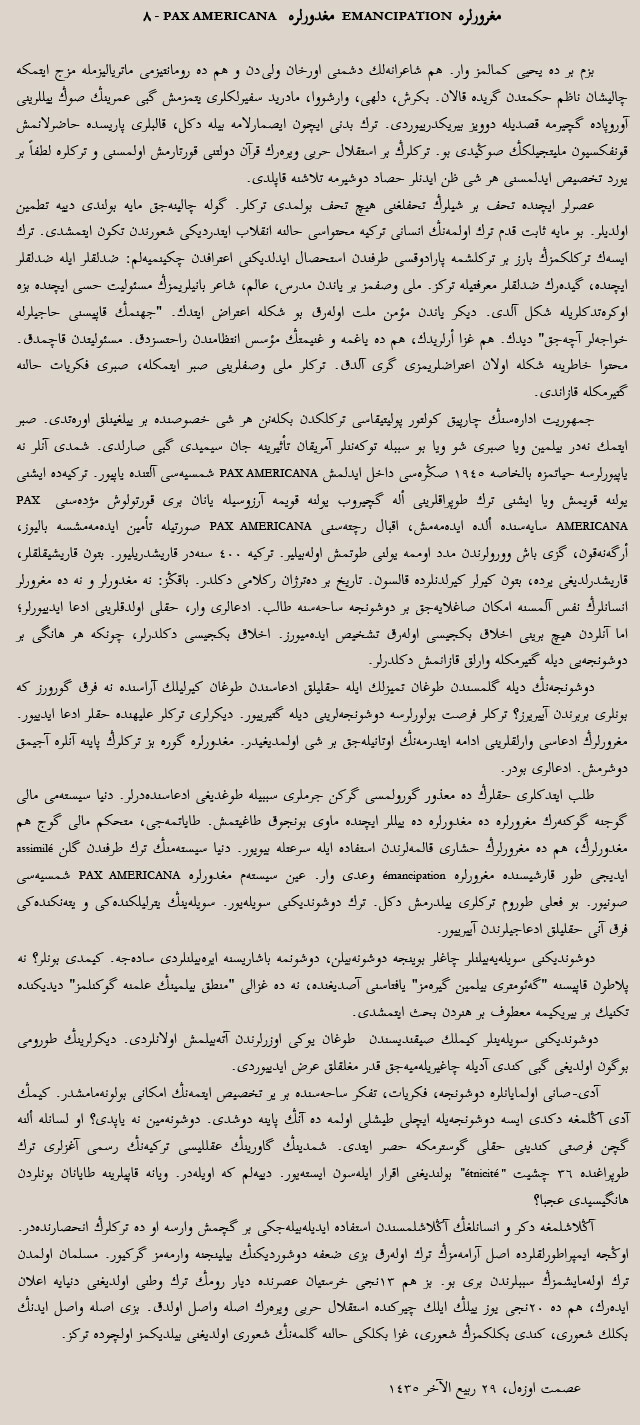 مغرورلره EMANCIPATION مغدورلره PAX AMERICANA - ٨
بزم بر ده یحیی كمالمز وار. هم شاعرانه‌لك دشمنی اورخان ولی‌دن و هم ده رومانتیزمی ماتریالیزمله مزج ایتمكه
چالیشان ناظم حكمتدن گریده قالان. بكرش، دلهی، وارشووا، مادرید سفیرلكلری یتمزمش گبی عمرینڭ صوڭ ییللرینی
آوروپاده گچیرمه قصدیله دوویز بیریكدرییوردی. ترك بدنی ایچون ایصمارلامه بیله دكل، قالبلری پاریسده حاضرلانمش
قونفكسیون ملیتجیلكڭ صوڭیدی بو. تركلرڭ بر استقلال حربی ویره‌رك قرآن دولتنی قورتارمش اولمسنی و تركلره لطفاً بر
یورد تخصیص ایدلمسنی هر شی ظن ایدنلر حصاد دوشیرمه تلاشنه قاپلدی.
عصرلر ایچنده تحف بر شیلرڭ تحفلغنی هیچ تحف بولمدی تركلر. گوله چالینه‌جق مایه بولندی دییه تطمین
اولدیلر. بو مایه ثابت قدم ترك اولمه‌نڭ انسانی تركیه محتواسی حالنه انقلاب ایتدردیكی شعورندن تكون ایتمشدی. ترك
ایسه‌ك تركلكمزڭ بارز بر تركلشمه پارادوقسی طرفندن استحصال ایدلدیكنی اعترافدن چكینمیه‌لم: ضدلقلر ایله ضدلقلر
ایچنده، گیده‌رك ضدلقلر معرفتیله تركز. ملی وصفمز بر یاندن مدرس، عالم، شاعر بانیلریمزڭ مسئولیت حسی ایچنده بزه
اوكره‌تدكلریله شكل آلدی. دیكر یاندن مؤمن ملت اوله‌رق بو شكله اعتراض ایتدك. "جهنمڭ قاپیسنی حاجیلرله
خواجه‌لر آچه‌جق" دیدك. هم غزا أرلریدك، هم ده یاغمه و غنیمتڭ مؤسس انتظامندن راحتسزدق. مسئولیتدن قاچمدق.
محتوا خاطرینه شكله اولان اعتراضلریمزی گری آلدق. تركلر ملی وصفلرینی صبر ایتمكله، صبری فكریات حالنه
گتیرمكله قازاندی.
جمهوریت اداره‌سنڭ چارپیق كولتور پولیتیقاسی تركلكدن بكله‌نن هر شی خصوصنده بر ییلغینلق اوره‌تدی. صبر
ایتمك نه‌در بیلمین ویا صبری شو ویا بو سببله توكه‌ننلر آمریقان تأثیرینه جان سیمیدی گبی صارلدی. شمدی آنلر نه
یاپیورلرسه حیاتمزه بالخاصه ١٩٤٥ صڭره‌سی داخل ایدلمش PAX AMERICANA شمسیه‌سی آلتنده یاپیور. تركیه‌ده ایشنی
یولنه قویمش ویا ایشنی ترك طوپراقلرینی أله گچیروب یولنه قویمه آرزوسیله یانان بری قورتولوش مژده‌سنی PAX
AMERICANA سایه‌سنده ألده ایده‌مه‌مش، اقبال رچته‌سنی PAX AMERICANA صورتیله تأمین ایده‌مه‌مشسه بالیوز،
أرگه‌نه‌قون، گزی باش وورولرندن مدد اوممه یولنی طوتمش اوله‌بیلیر. تركیه ٤٠٠ سنه‌در قاریشدریلیور. بتون قاریشیقلقلر،
قاریشدرلدیغی یرده، بتون كیرلر كیرلدنلرده قالسون. تاریخ بر ده‌ترژان ركلامی دكلدر. باقڭز: نه مغدورلر و نه ده مغرورلر
انسانلرڭ نفس آلمسنه امكان صاغلایه‌جق بر دوشونجه ساحه‌سنه طالب. ادعالری وار، حقلی اولدقلرینی ادعا ایدییورلر؛
اما آنلردن هیچ برینی اخلاق بكجیسی اوله‌رق تشخیص ایده‌میورز. اخلاق بكجیسی دكلدرلر، چونكه هر هانگی بر
دوشونجه‌یی دیله گتیرمكله وارلق قازانمش دكلدرلر.
دوشونجه‌نڭ دیله گلمسندن طوغان تمیزلك ایله حقلیلق ادعاسندن طوغان كیرلیلك آراسنده نه فرق گورورز كه
بونلری بربرندن آییریرز؟ تركلر فرصت بولورلرسه دوشونجه‌لرینی دیله گتیرییور. دیكرلری تركلر علیهنده حقلر ادعا ایدییور.
مغرورلرڭ ادعاسی وارلقلرینی ادامه ایتدرمه‌نڭ اوتانیله‌جق بر شی اولمدیغیدر. مغدورلره گوره بز تركلرڭ پاینه آنلره آجیمق
دوشرمش. ادعالری بودر.
طلب ایتدكلری حقلرڭ ده معذور گورولمسی گركن جرملری سببیله طوغدیغی ادعاسنده‌درلر. دنیا سیسته‌می مالی
گوجنه گوكنه‌رك مغرورلره ده مغدورلره ده ییللر ایچنده ماوی بونجوق طاغیتمش. طایاتمه‌جی، متحكم مالی گوج هم
مغدورلرڭ، هم ده مغرورلرڭ حشاری قالمه‌لرندن استفاده ایله سرعتله بیویور. دنیا سیسته‌منڭ ترك طرفندن گلن assimilé
ایدیجی طور قارشیسنده مغرورلره émancipation وعدی وار. عین سیسته‌م مغدورلره PAX AMERICANA شمسیه‌سی
صونیور. بو فعلی طوروم تركلری ییلدرمش دكل. ترك دوشوندیكنی سویله‌یور. سویله‌ینڭ یترلیلكنده‌كی و یته‌نكنده‌كی
فرق آنی حقلیلق ادعاجیلرندن آییرییور.
دوشوندیكنی سویله‌یه‌بیلنلر چاغلر بوینجه دوشونه‌بیلن، دوشونمه باشاریسنه ایره‌بیلنلردی ساده‌جه. كیمدی بونلر؟ نه
پلاطون قاپیسنه "گه‌ئومتری بیلمین گیره‌مز" یافتاسنی آصدیغنده، نه ده غزالی "منطق بیلمینڭ علمنه گوكنلمز" دیدیكنده
تكنیك بر بیریكیمه معطوف بر هنردن بحث ایتمشدی.
دوشوندیكنی سویله‌ینلر كیملك صیقندیسندن طوغان یوكی اوزرلرندن آته‌بیلمش اولانلردی. دیكرلرینڭ طورومی
بوگون اولدیغی گبی كندی آدیله چاغیریله‌میه‌جق قدر مغلقلق عرض ایدییوردی.
آدی-صانی اولمایانلره دوشونجه، فكریات، تفكر ساحه‌سنده بر یر تخصیص ایتمه‌نڭ امكانی بولونه‌مامشدر. كیمڭ
آدی آڭلمغه دكدی ایسه دوشونجه‌یله ایچلی طیشلی اولمه ده آنڭ پاینه دوشدی. دوشونه‌مین نه یاپدی؟ او لسانله ألنه
گچن فرصتی كندینی حقلی گوسترمكه حصر ایتدی. شمدینڭ گاورینڭ عقللیسی تركیه‌نڭ رسمی آغزلری ترك
طوپراغنده ٣٦ چشیت "étnicité" بولندیغنی اقرار ایله‌سون ایسته‌یور. دییه‌لم كه اویله‌در. ویانه قاپیلرینه طایانان بونلردن
هانگیسیدی عجبا؟
آڭلاشلمغه دكر و انسانلغڭ آڭلاشلمسندن استفاده ایدیله‌بیله‌جكی بر گچمش وارسه او ده تركلرڭ انحصارنده‌در.
اوڭجه ایمپراطورلقلرده اصل آرامه‌مزڭ ترك اوله‌رق بزی ضعفه دوشوردیكنڭ بیلینجنه وارمه‌مز گركیور. مسلمان اولمدن
ترك اوله‌مایشمزڭ سببلرندن بری بو. بز هم ١٣نجی خرستیان عصرنده دیار رومڭ ترك وطنی اولدیغنی دنیایه اعلان
ایده‌رك، هم ده ٢٠نجی یوز ییلڭ ایلك چیركنده استقلال حربی ویره‌رك اصله واصل اولدق. بزی اصله واصل ایدنڭ
بكلك شعوری، كندی بكلكمزڭ شعوری، غزا بكلكی حالنه گلمه‌نڭ شعوری اولدیغنی بیلدیكمز اولچوده تركز.
عصمت اوزه‌ل، ٢٩ ربیع الآخر ١٤٣٥